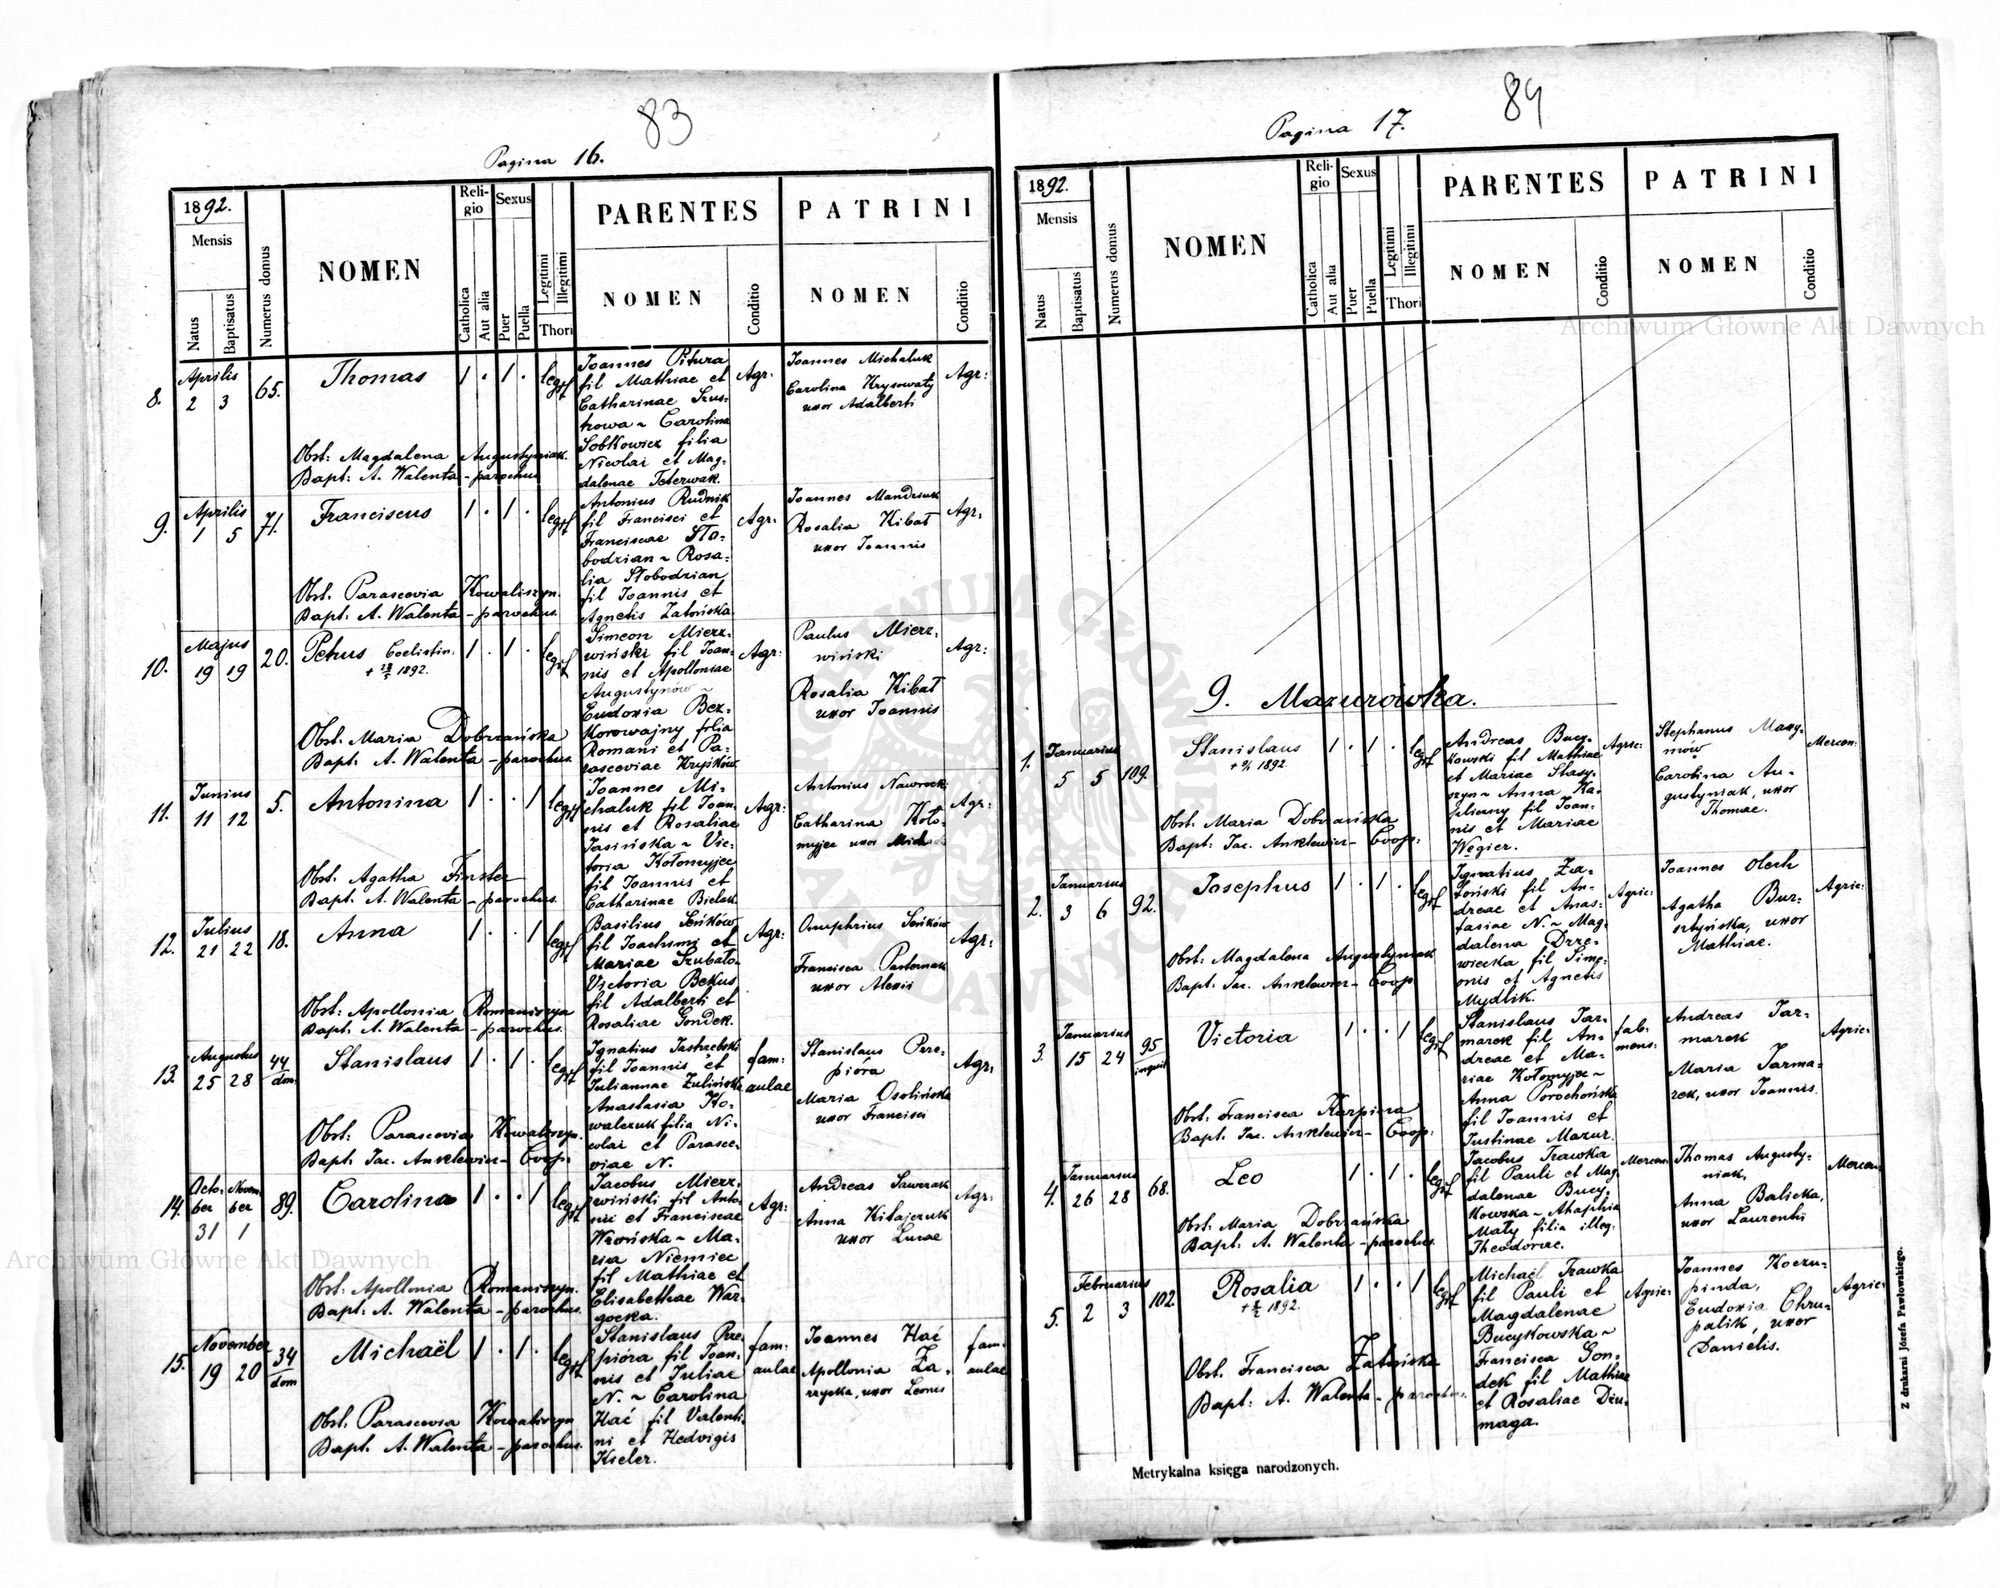 83
Pagina 16.
1892.
Mensis
Natus
Baptisatus
Numerus domus
NOMEN
Religio
Catholica
Aut alia
Sexus
Puer
Puella
Legitimi
Illegitimi
Thori
PARENTES
NOMEN
Conditio
PATRINI
NOMEN
Conditio
8. Aprilis 2 3 65. Thomas 1 . 1 . legit
Obst: Magdalena Augustyniak.
Bapt: A. Walenta - parochus
Joannes Pitura
fil Mathiae et
Catharinae Szus-
trowa ~ Carolina
Sobkowicz filia
Nicolai et Mag-
dalenae Teterwak.
Agr:
Joannes Michaluk
Carolina Krysowaty
uxor Adalberti
Agr:
9. Aprilis 1 5 71. Franciscus 1 . 1 . legit
Obst. Parascevia Kowaliszyn.
Bapt: A. Walenta - parochus.
Antonius Rudnik
fil Francisci et
Franciscae Sło-
bodzian ~ Rosa-
lia Słobodzian
fil Joannis et
Agnetis Zatońska
Agr:
Joannes Mandziuk
Rosalia Kibał
uxor Joannis
Agr:
10. Majus 19 19 20. Petrus Coelestin. 1 . 1 . legit
1892.
Obst. Maria Dobrzańska
Bapt. A. Walenta - parochus.
Simeon Mierz-
wiński fil Joan-
nis et Apolloniae
Augustynów ~
Eudoxia Bez-
korowajny filia
Romani et Pa-
rasceviae Kryśków
Agr:
Paulus Mierz-
wiński
Rosalia Kibał
uxor Joannis
Agr:
11. Junius 11 12 5. Antonina 1 . . 1 legit
Obst. Agatha Finster
Bapt. A. Walenta - parochus.
Joannes Mi-
chaluk fil Joan-
nis et Rosaliae
Jasińska ~ Vic-
toria Kołomyjec
fil Joannis et
Catharinae Bielak
Agr:
Antonius Nawrocki
Catharina Koło-
myjec uxor
Agr:
12. Julius 21 22 18. Anna 1 . . 1 legit
Obst: Apollonia Romaniszyn
Bapt. A. Walenta - parochus.
Basilius Seńków
fil Joachimi et
Mariae Szubało-
Victoria Bekus
fil Adalberti et
Rosaliae Gondek.
Agr:
Onuphrius Seńków
Francisca Pasternak
uxor Alexii
Agr:
13. Augustus 25 28 44/dom Stanislaus 1 . 1 . legit
Obst: Parascevia Kowaliszyn.
Bapt: Jac. Anklewicz - Coop.
Ignatius Jastrzebski
fil Joannis et
Juliannae Zulińska
Anastasia Ko-
walczuk filia Ni-
colai et Parasce-
viae N.
fam:
aulae
Stanislaus Prze-
pióra
Maria Osolińska
uxor Francisci
Agr:
14. October November 31 1 89. Carolina 1 . . 1 legit
Obst: Apollonia Romaniszyn.
Bapt: A. Walenta - parochus.
Jacobus Mierz-
wiński fil Anto-
nii et Franciscae
Wrońska ~ Ma-
ria Niemiec
fil Mathiae et
Elisabethae War-
gocka.
Agr:
Andreas Sawczak
Anna Kiłajczuk
uxor Lucae
Agr:
15. November 19 20 34/dom Michaël 1 . 1 . legit
Obst: Parascevia Kowaliszyn
Bapt. A. Walenta - parochus.
Stanislaus Prze-
pióra fil Joan-
nis et Juliae
N. ~ Carolina
Hać fil Valenti-
ni et Hedvigis
Kieler.
fam.
aulae
Joannes Hać
Apollonia Za-
rzycka, uxor Leonis
fam.
aulae
84
Pagina 17.
1892.
Mensis
Natus
Baptisatus
Numerus domus
NOMEN
Religio
Catholica
Aut alia
Sexus
Puer
Puella
Legitimi
Illegitimi
Thori
PARENTES
NOMEN
Conditio
PATRINI
NOMEN
Conditio
9. Mazurówka.
1. Januarius 5 5 109. Stanislaus 1 . 1 . legit
1892.
Obst. Maria Dobrzańska
Bapt: Jac. Anklewicz - Coop:
Andreas Bucy-
kowski fil Mathiae
et Mariae Stasy-
szyn ~ Anna Ka-
pliczny fil Joan-
nis et Mariae
Węgier.
Agric:
Stephanus Maxy-
mów
Carolina Au-
gustyniak, uxor
Thomae.
Mercen:
2. Januarius 3 6 92. Josephus 1 . 1 . legit
Obst: Magdalena Augustyniak
Bapt: Jac. Anklewicz - Coop
Ignatius Za-
toński fil An-
dreae et Anas-
tasiae N. ~ Mag-
dalena Drze-
wiecka fil Sime-
onis et Agnetis
Mydlik.
Agric:
Joannes Olech
Agatha Bur-
sztyńska, uxor
Mathiae.
Agric:
3. Januarius 15 24 95/inquil Victoria 1 . . 1 legit
Obst: Francisca Karpina
Bapt. Jac. Anklewicz - Coop:
Stanislaus Jar-
marek fil An-
dreae et Ma-
riae Kołomyjec ~
Anna Porochońska
fil Joannis et
Justinae Mazur.
Andreas Jar-
marek
Maria Jarma-
rek, uxor Joannis.
Agric:
4. Januarius 26 28 68. Leo 1 . 1 . legit
Obst: Maria Dobrzańska
Bapt: A. Walenta - parochus.
Jacobus Trawka
fil Pauli et Mag
dalenae Bucy-
kowska ~ Ahaphia
Mały filia illeg.
Theodoriae.
Mercen:
Thomas Augusty-
niak,
Anna Balicka,
uxor Laurentii
Mercen:
5. Februarius 2 3 102. Rosalia 1 . . 1 legit
1892.
Obst. Francisca Zatońska
Bapt: A. Walenta - parochus.
Michaël Trawka
fil Pauli et
Magdalenae
Bucykowska ~
Francisca Gon-
dek fil Mathiae
et Rosaliae Dzu-
maga.
Agric:
Joannes Koczu-
pinda,
Eudoxia Chru-
palik, uxor
Danielis.
Agric:
Metrykalna księga narodzonych.
Z drukarni Józefa Pawłowskiego.
Archiwum Główne Akt Dawnych
Archiwum Główne Akt Dawnych
ARCHIWUM GŁÓWNE AKT DAWNYCH